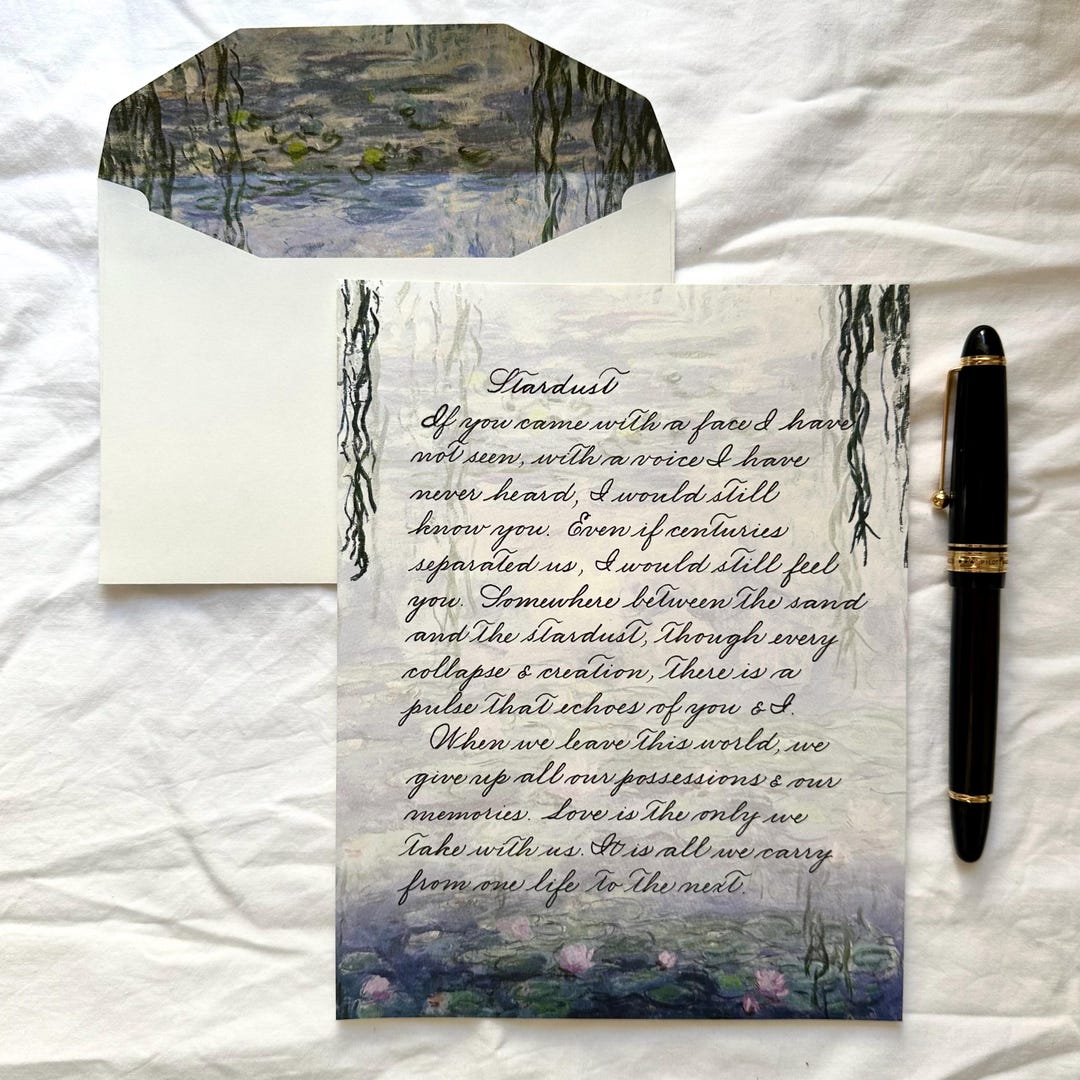 Stardust
If you came with a face I have
not seen, with a voice I have
never heard, I would still
know you. Even if centuries
separated us, I would still feel
you. Somewhere between the sand
and the stardust, though every
collapse & creation, there is a
pulse that echoes of you & I.
When we leave this world, we
give up all our possessions & our
memories. Love is the only we
take with us. It is all we carry
from one life to the next.
PILOT